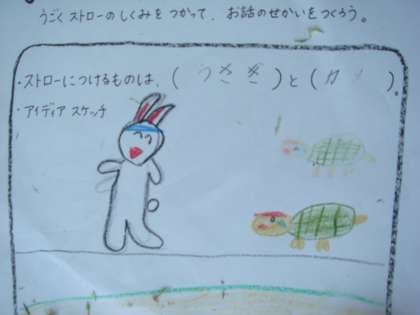 うごくストローのしくみをつかって、お話のせかいをつくろう。
・ストローにつけるものは、(うさぎ)と(か　)。
・アイディアスケッチ